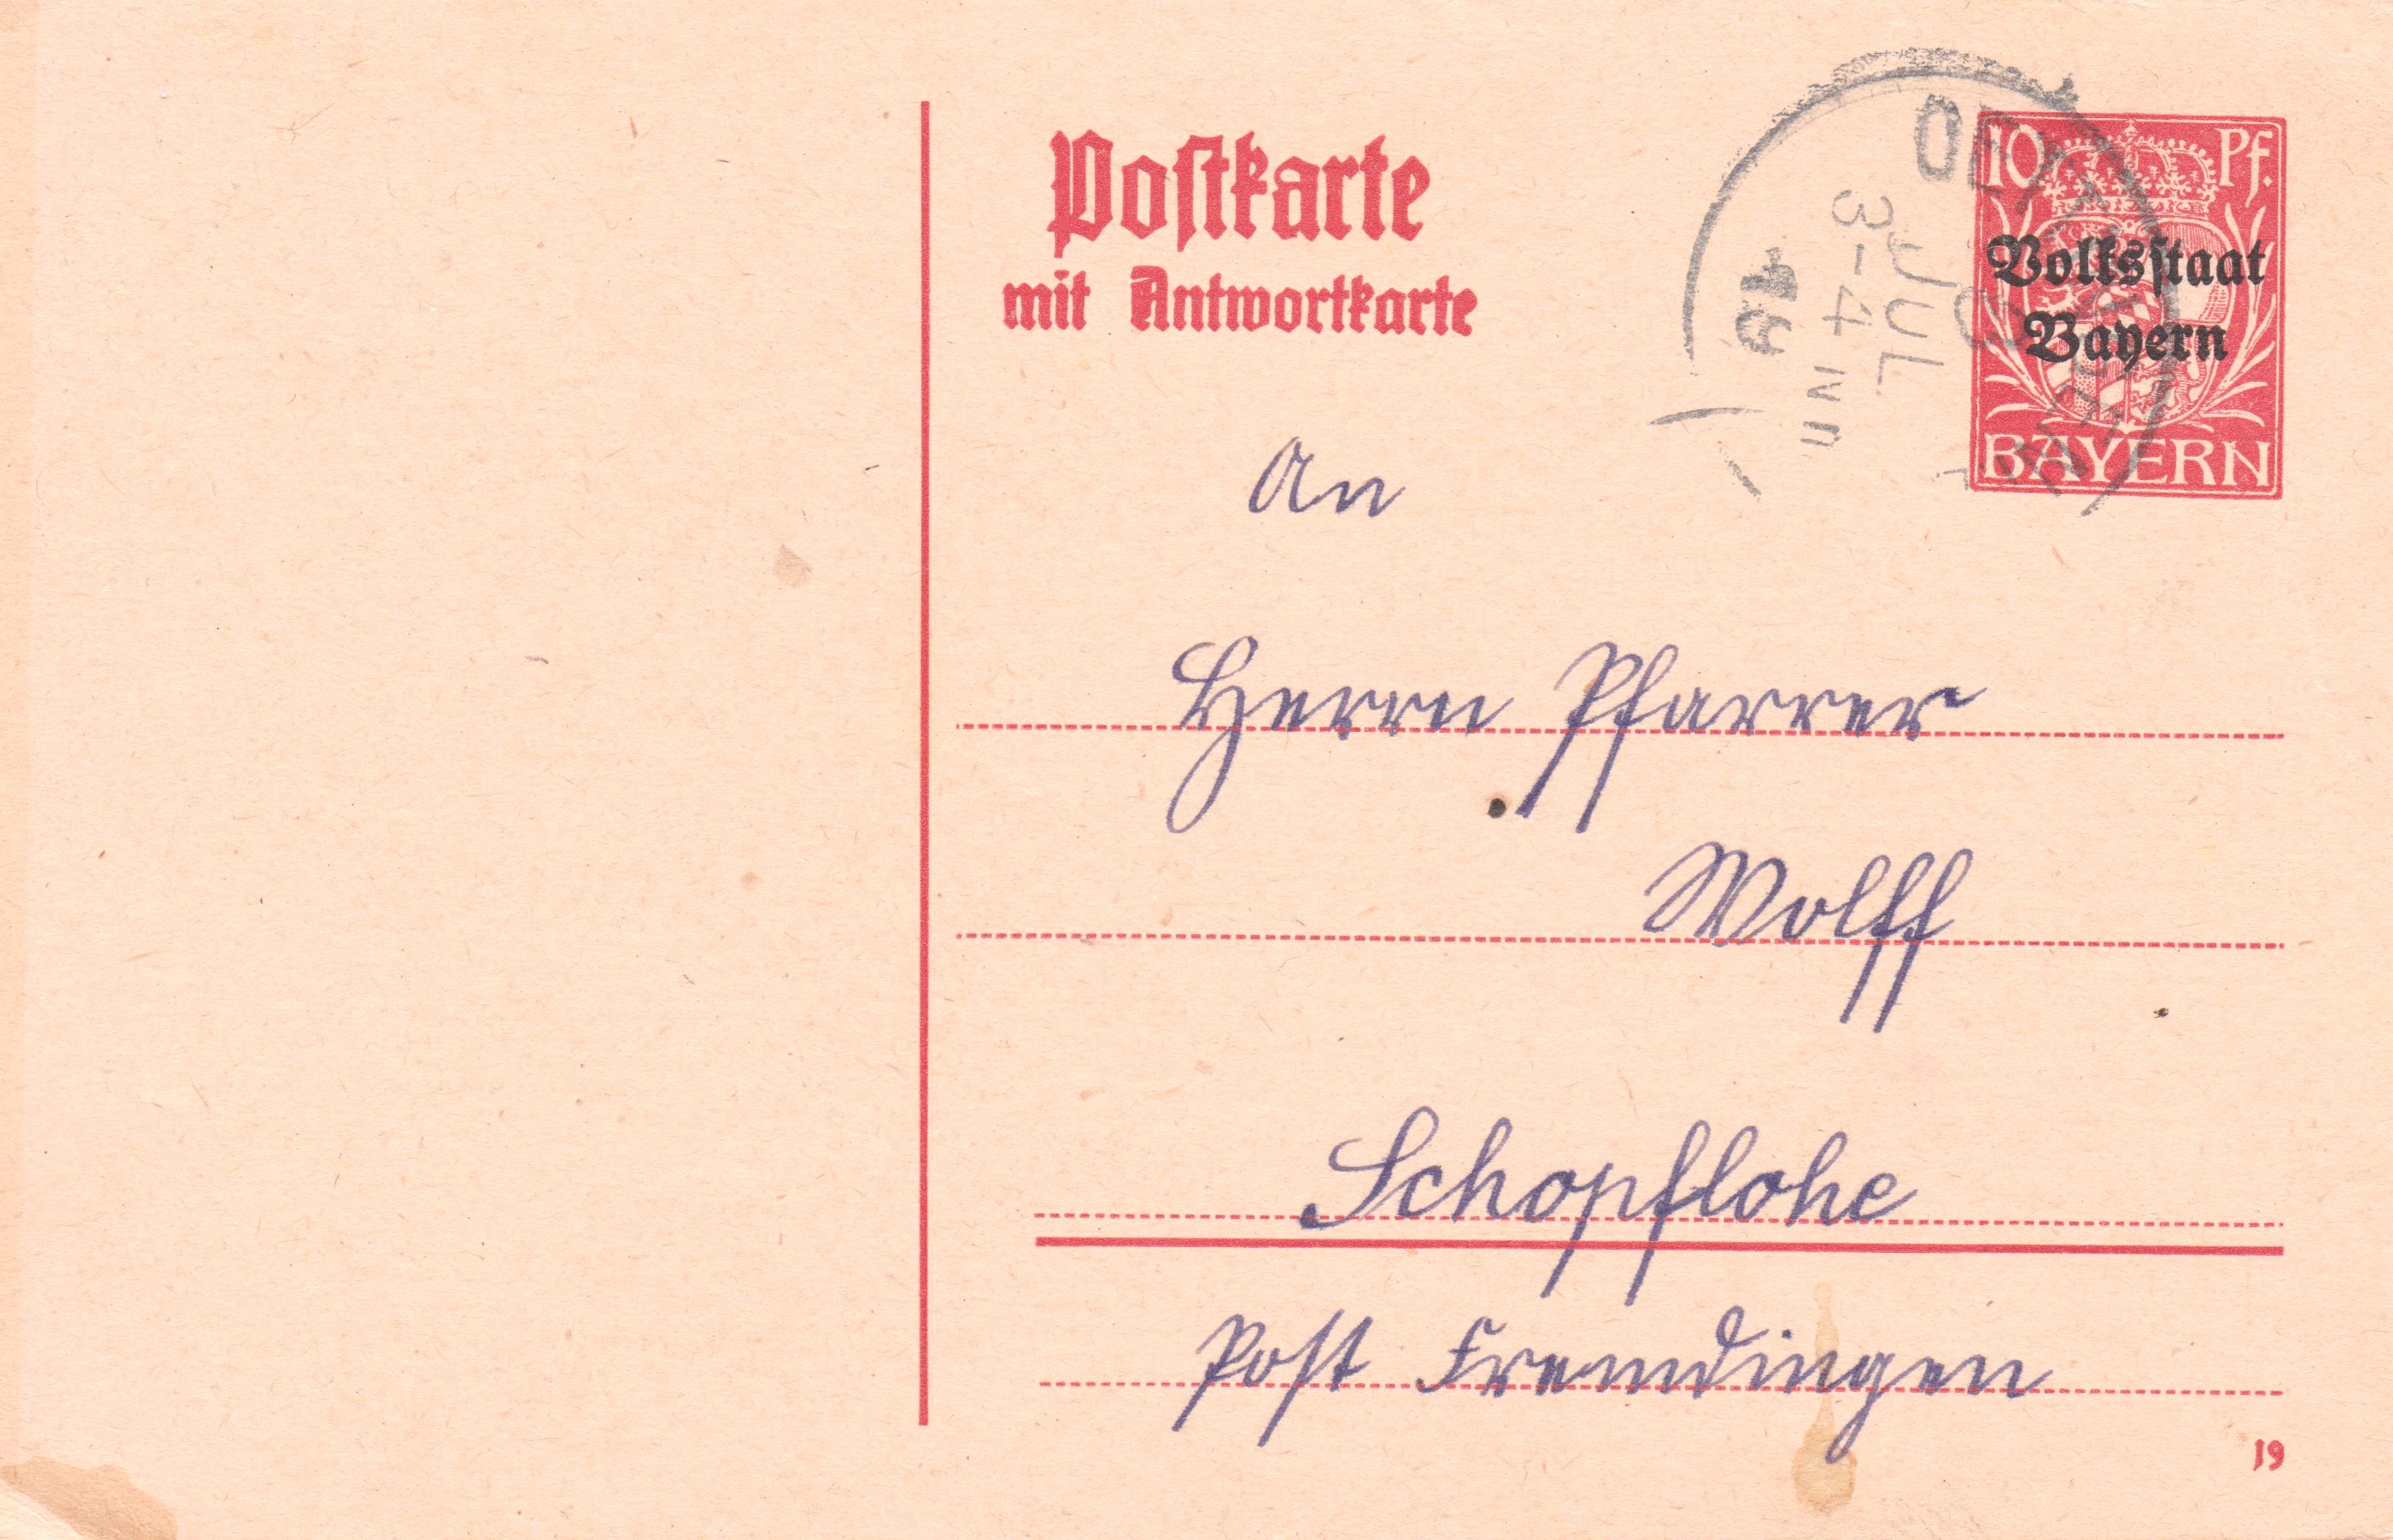 Postkarte
mit Antwortkarte
10 Pf.
Volksstaat
Bayern
BAYERN
3-4 NM
JUL
19
An
Herrn Pfarrer
Wolff
Schopflohe
Post Fremdingen
19